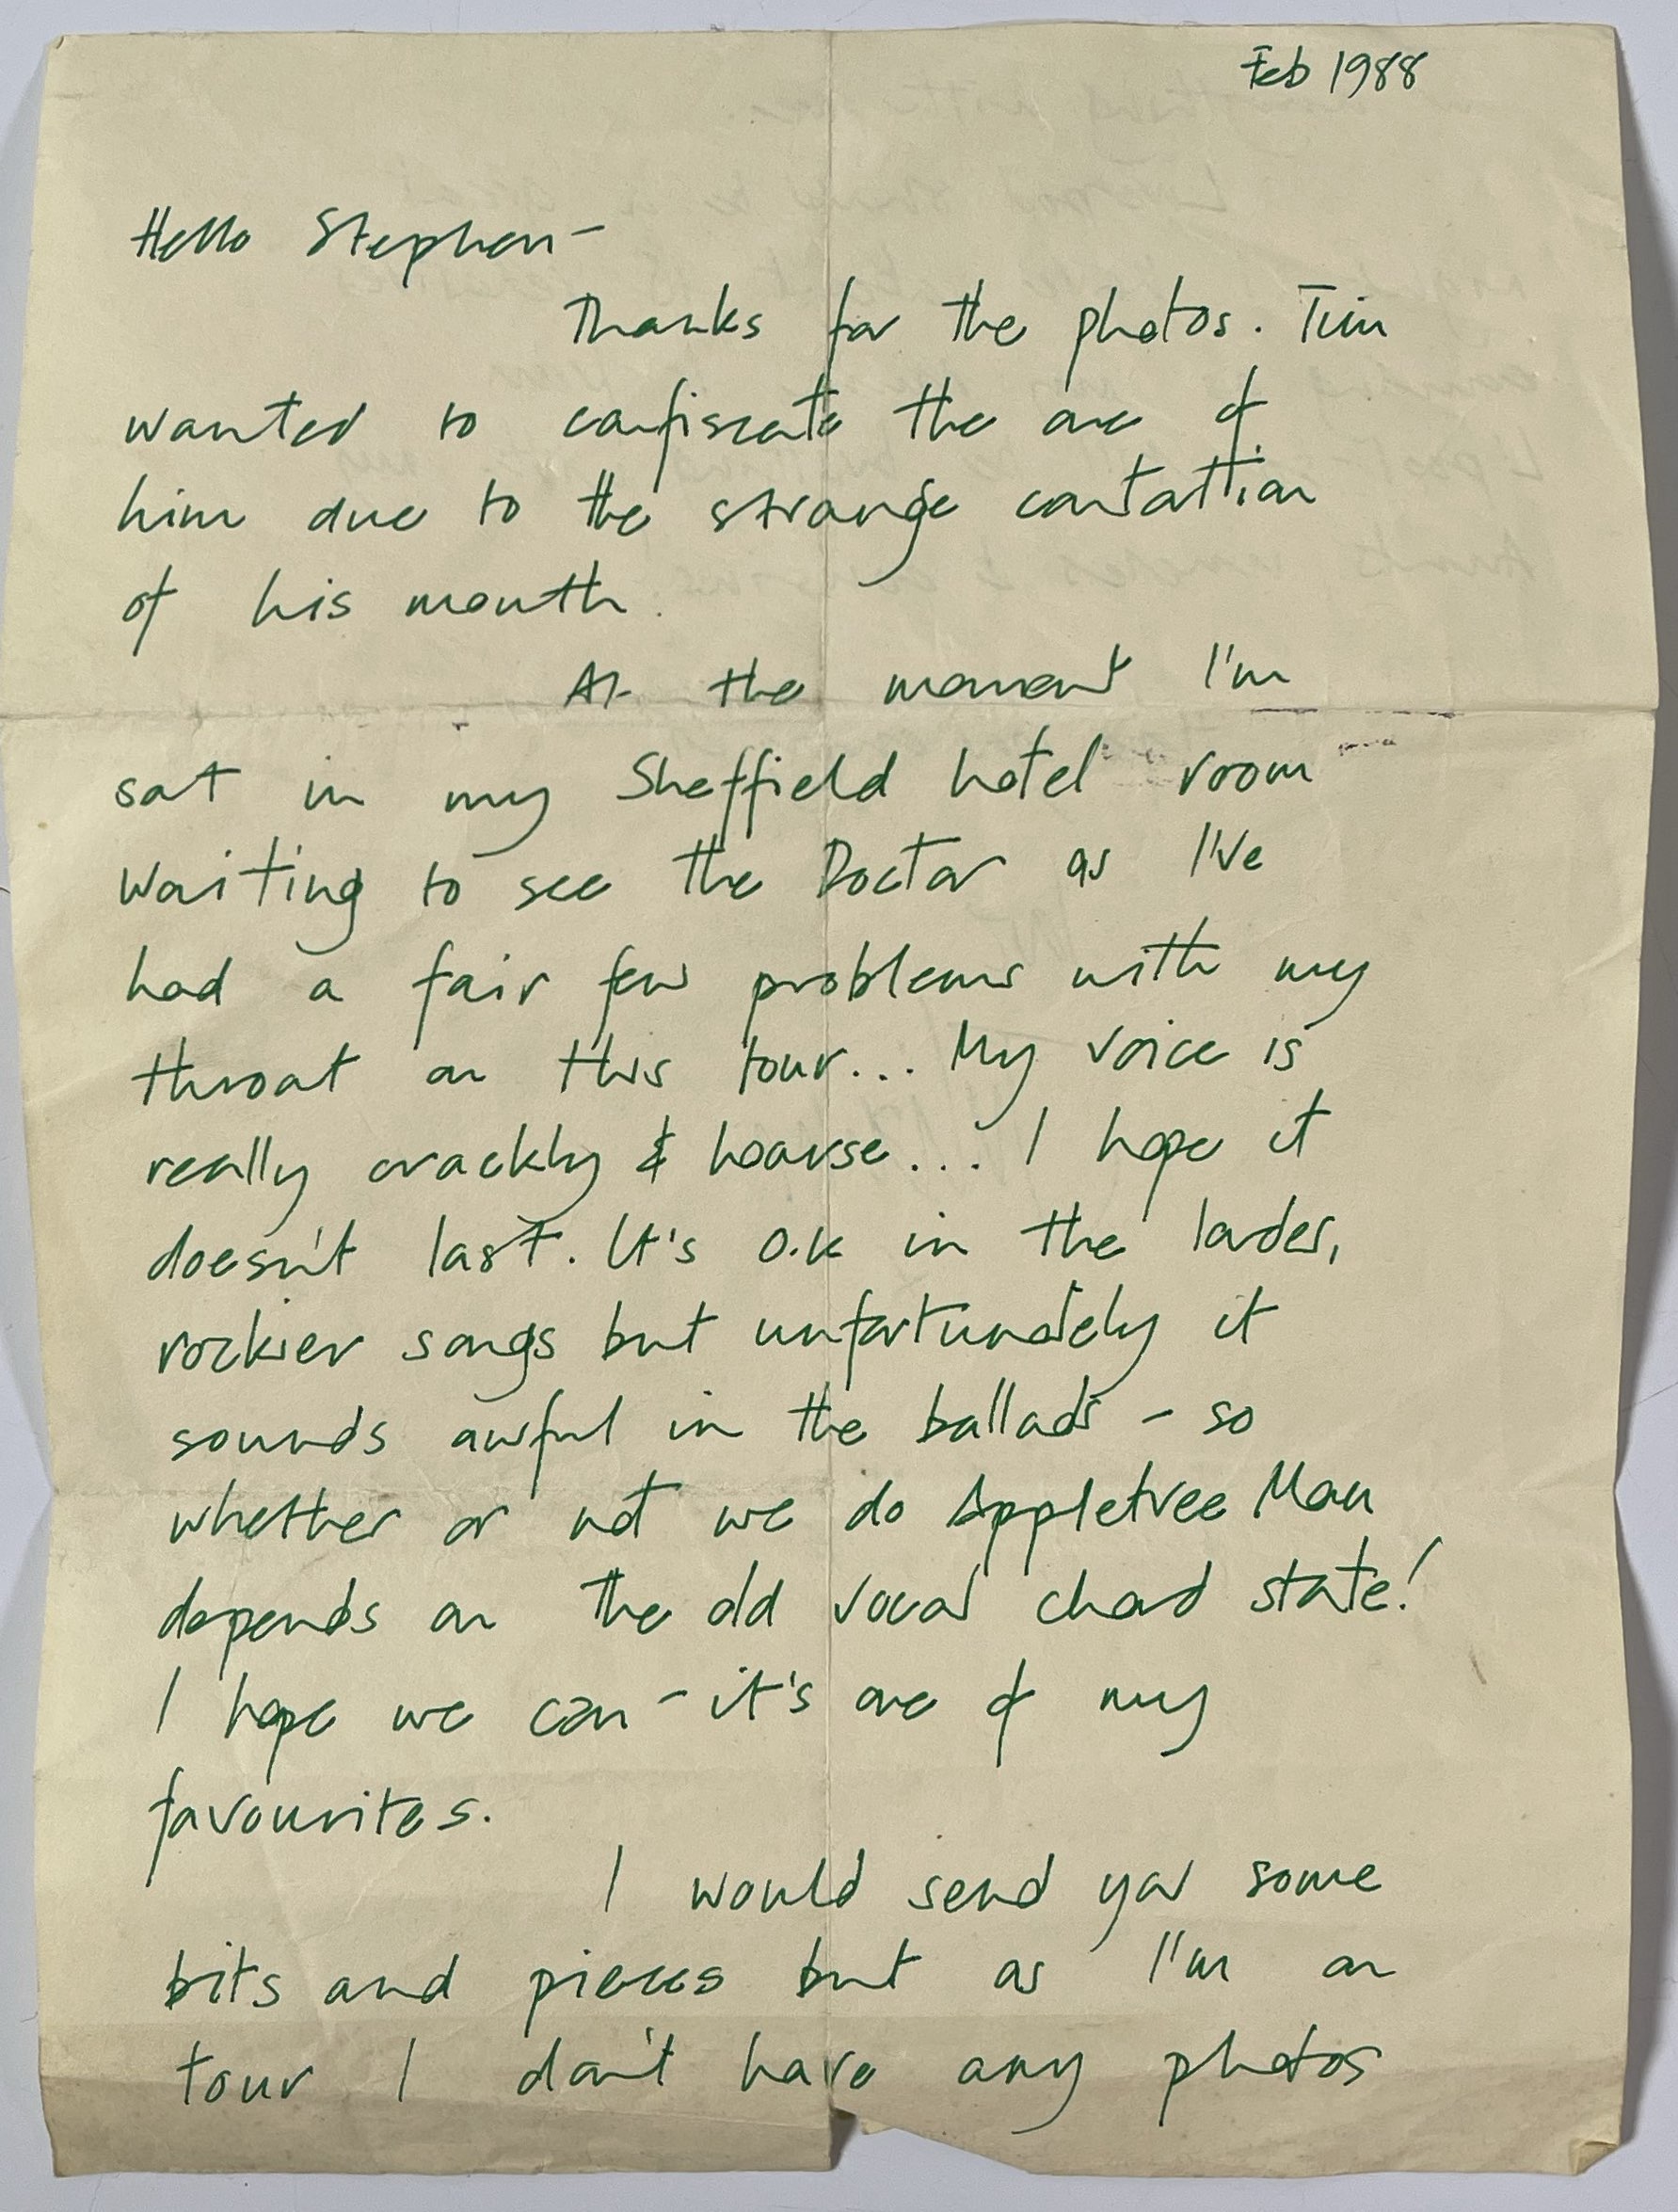 Feb 1988
Hello Stephen-
Thanks for the photos. Tim
wanted to confiscate the one of
him due to the strange contattion
of his mouth.
At the moment I'm
sat in my Sheffield hotel room
waiting to see the Doctor as I've
had a fair few problems with my
throat on this tour... My voice is
really crackly & hoarse... I hope it
doesn't last. It's O.K in the louder,
rockier songs but unfortunately it
sounds awful in the ballads - so
whether or not we do Appletree Man
depends on the old vocal chord state!
I hope we can - it's one of my
favourites.
I would send you some
bits and pieces but as I'm on
tour I don't have any photos